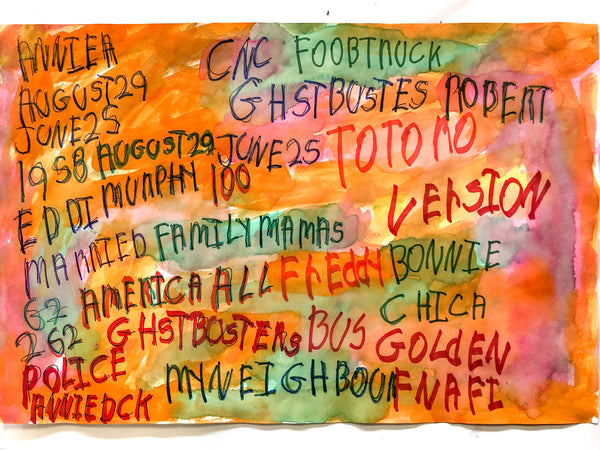 ANNIEA CNC FOOBTRUCK
AUGUST29 GHSTBUSTES ROBERT
JUNE25
1958 AUGUST29 JUNE25 TOTOMO
EDDI MURPHY 100 VERSION
MARRIED FAMILY MAMAS
62 AMERICA ALL FhEddy BONNIE
262 GHSTBOSTERS BUS CHICA
POLICE MYNEIGHBOUR GOLDEN
ANNIEDCK FNAFI